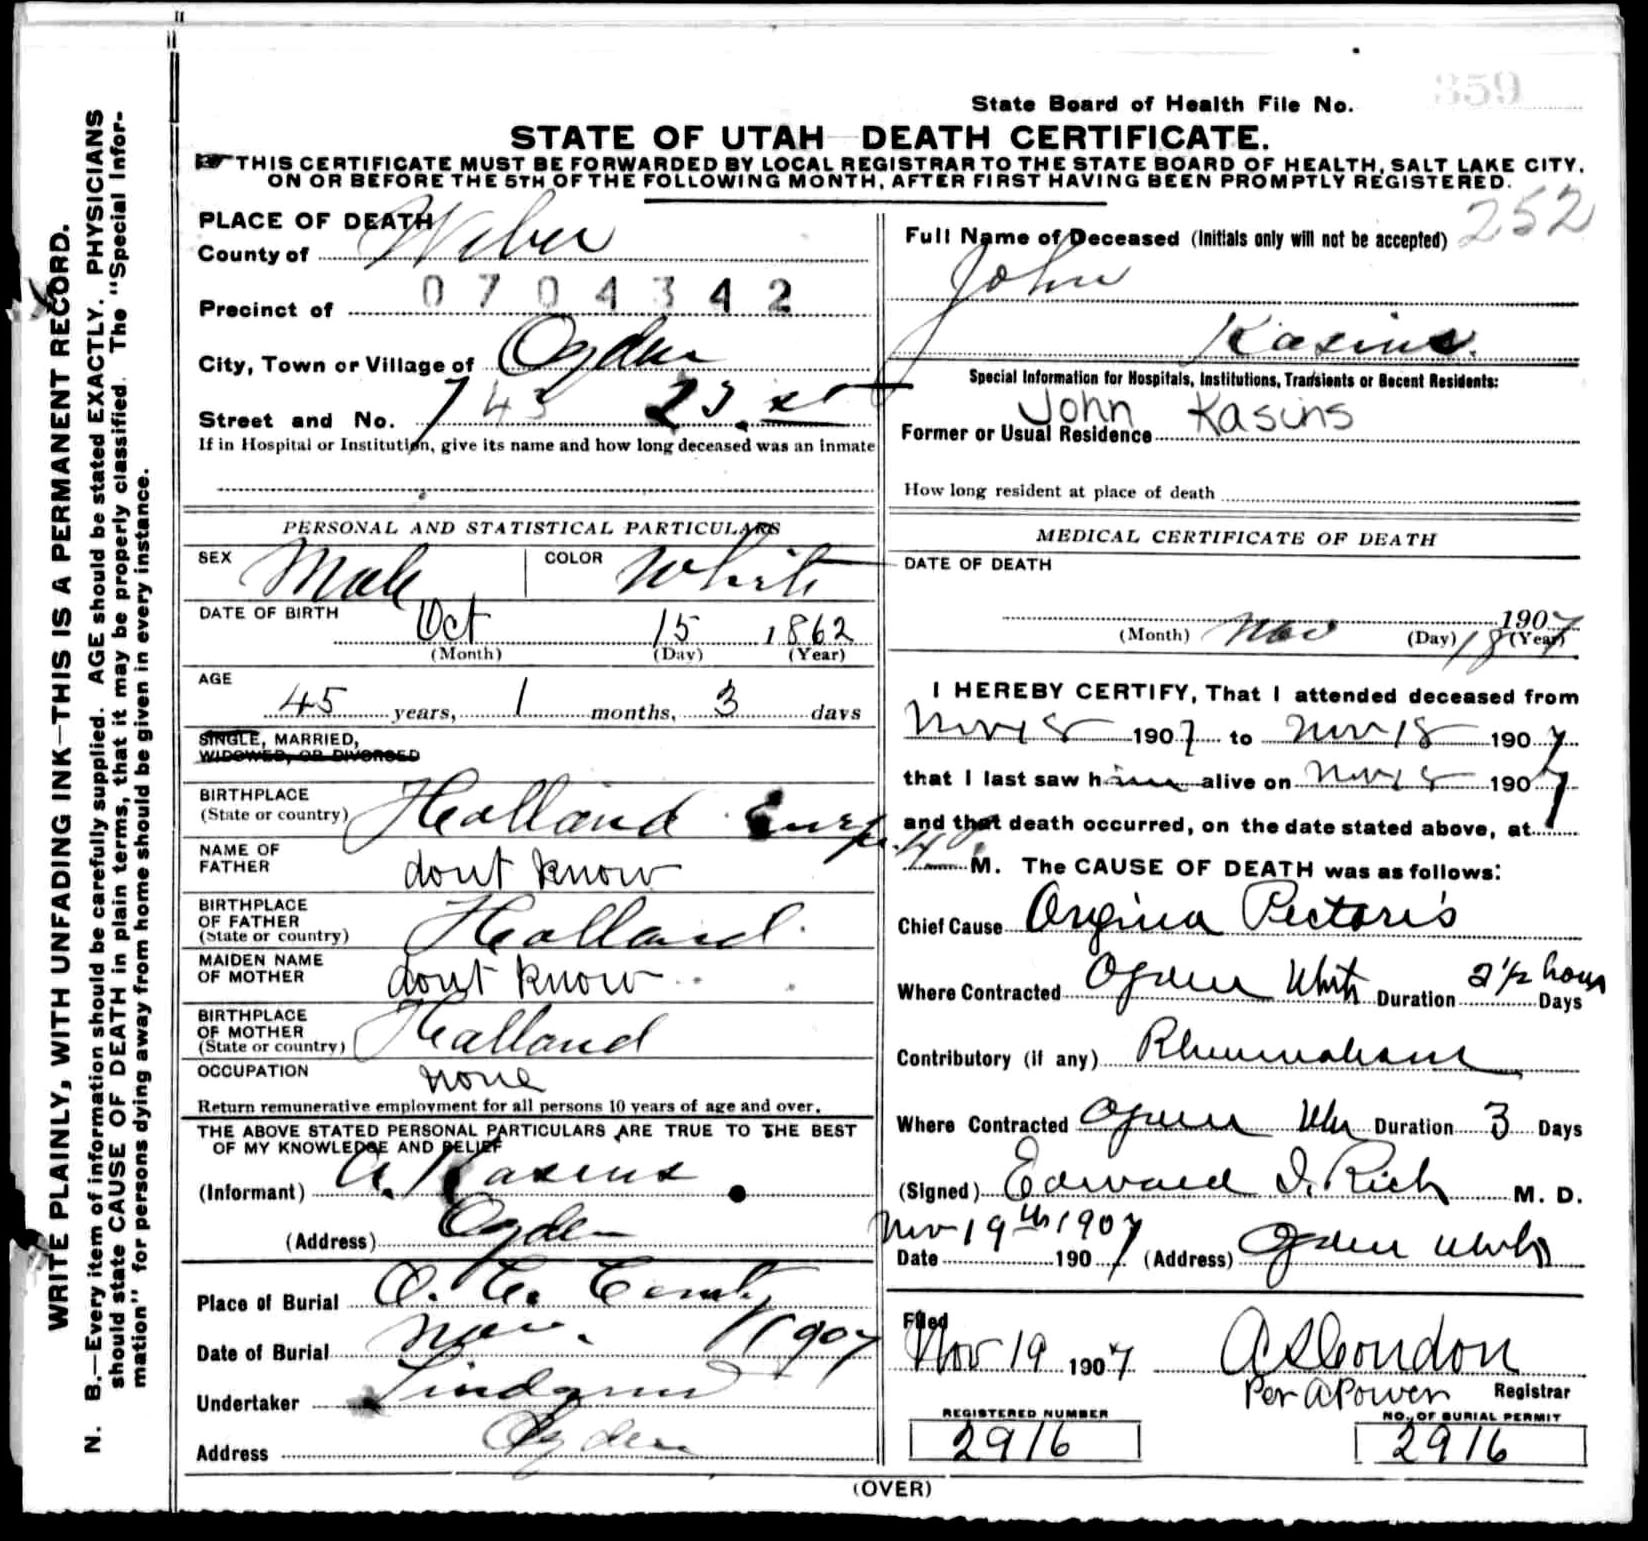 WRITE PLAINLY, WITH UNFADING INK—THIS IS A PERMANENT RECORD.
N. B.—Every item of information should be carefully supplied. AGE should be stated EXACTLY. PHYSICIANS
should state CAUSE OF DEATH in plain terms, that it may be properly classified. The "Special Infor-
mation" for persons dying away from home should be given in every instance.
State Board of Health File No. 359
STATE OF UTAH—DEATH CERTIFICATE.
THIS CERTIFICATE MUST BE FORWARDED BY LOCAL REGISTRAR TO THE STATE BOARD OF HEALTH, SALT LAKE CITY,
ON OR BEFORE THE 5TH OF THE FOLLOWING MONTH, AFTER FIRST HAVING BEEN PROMPTLY REGISTERED.
252
PLACE OF DEATH
County of Weber
Precinct of 0704342
City, Town or Village of Ogden
Street and No. 743 23. st
If in Hospital or Institution, give its name and how long deceased was an inmate
PERSONAL AND STATISTICAL PARTICULARS
SEX Male COLOR White
DATE OF BIRTH Oct 15 1862
(Month) (Day) (Year)
AGE
45 years, 1 months, 3 days
SINGLE, MARRIED,
WIDOWED, OR DIVORCED
BIRTHPLACE
(State or country) Holland
NAME OF
FATHER dont know
BIRTHPLACE
OF FATHER
(State or country) Holland.
MAIDEN NAME
OF MOTHER dont know
BIRTHPLACE
OF MOTHER
(State or country) Holland
OCCUPATION none
Return remunerative employment for all persons 10 years of age and over.
THE ABOVE STATED PERSONAL PARTICULARS ARE TRUE TO THE BEST
OF MY KNOWLEDGE AND BELIEF
(Informant) A. Kasius
(Address) Ogden
Place of Burial O. C. Cemt
Date of Burial Nov. 1907
Undertaker Lindquist
Address Ogden
Full Name of Deceased (Initials only will not be accepted)
John
Kasius.
Special Information for Hospitals, Institutions, Transients or Recent Residents:
John Kasius
Former or Usual Residence
How long resident at place of death
MEDICAL CERTIFICATE OF DEATH
DATE OF DEATH
1907
(Month) Nov (Day) 18 (Year)
I HEREBY CERTIFY, That I attended deceased from
Nov 18 1907 to Nov 18 1907
that I last saw him alive on Nov 18 1907
and that death occurred, on the date stated above, at
M. The CAUSE OF DEATH was as follows:
Chief Cause Angina Pectoris
Where Contracted Ogden Utah Duration 2 1/2 hours Days
Contributory (if any) Rheumatism
Where Contracted Ogden Utah Duration 3 Days
(Signed) Edward I. Rich M. D.
Nov 19th 1907
Date 1907 (Address) Ogden Utah
Filed
Nov 19 1907 A S Condon
Per A Power Registrar
REGISTERED NUMBER
2916
NO. OF BURIAL PERMIT
2916
(OVER)